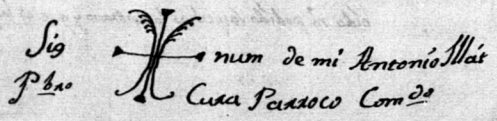 Sig num de mi Antonio Illát
Pbro Cura Parroco Comdo